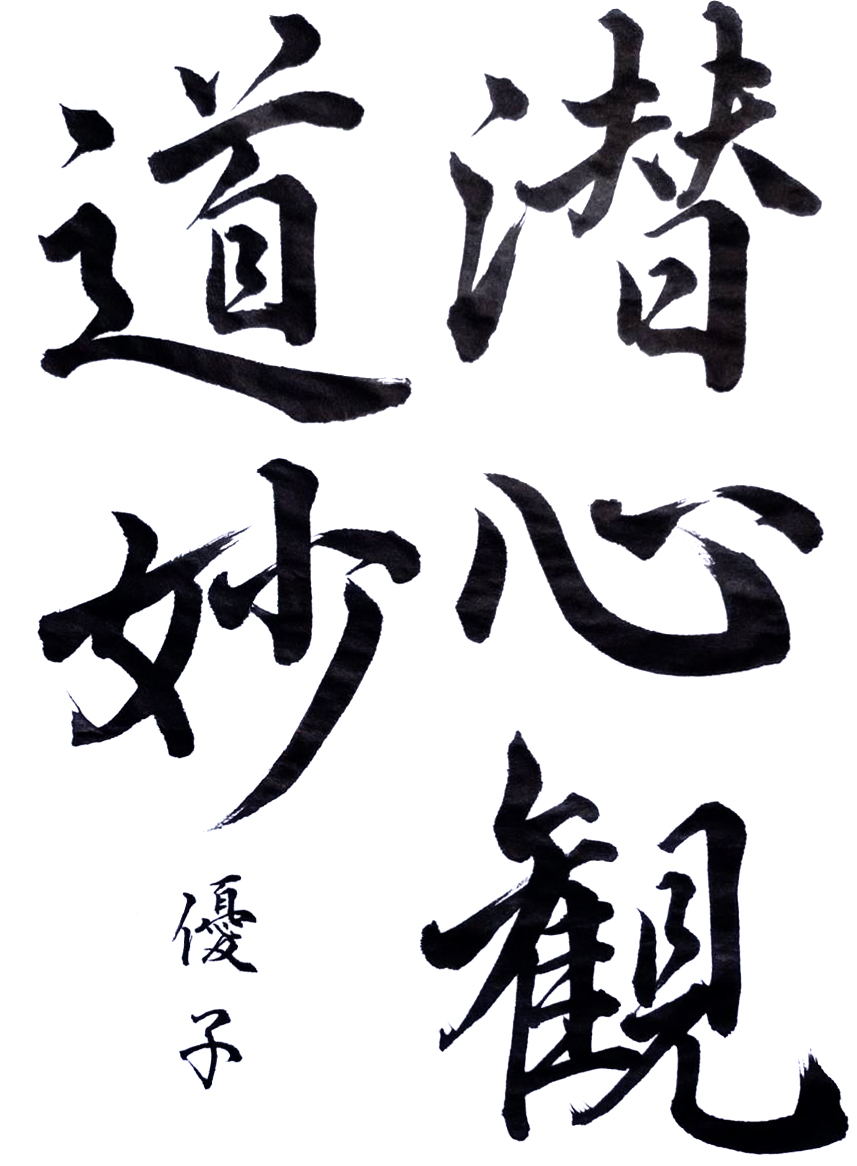 潜心観
道妙
優子